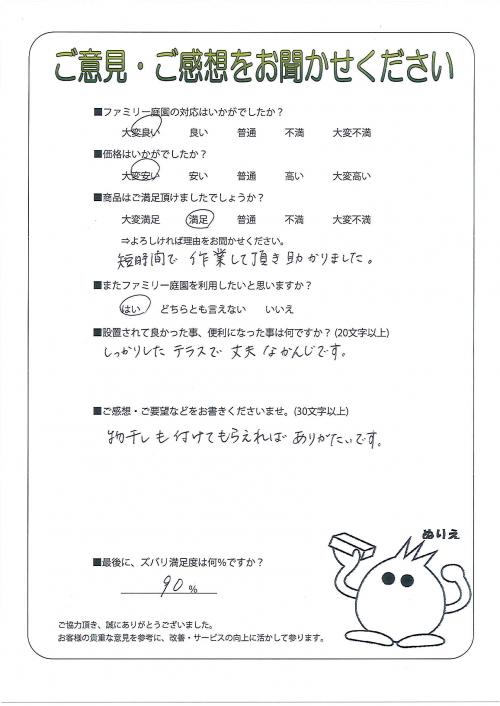 ご意見・ご感想をお聞かせください
■ファミリー庭園の対応はいかがでしたか？
大変良い 良い 普通 不満 大変不満
■価格はいかがでしたか？
大変安い 安い 普通 高い 大変高い
■商品はご満足頂けましたでしょうか？
大変満足 満足 普通 不満 大変不満
⇒よろしければ理由をお聞かせください。
短時間で作業して頂き助かりました。
■またファミリー庭園を利用したいと思いますか？
はい どちらとも言えない いいえ
■設置されて良かった事、便利になった事は何ですか？(20文字以上)
しっかりしたテラスで丈夫なかんじです。
■ご感想・ご要望などをお書きくださいませ。(30文字以上)
物干しも付けてもらえればありがたいです。
ぬりえ
■最後に、ズバリ満足度は何％ですか？
90％
ご協力頂き、誠にありがとうございました。
お客様の貴重な意見を参考に、改善・サービスの向上に活かして参ります。